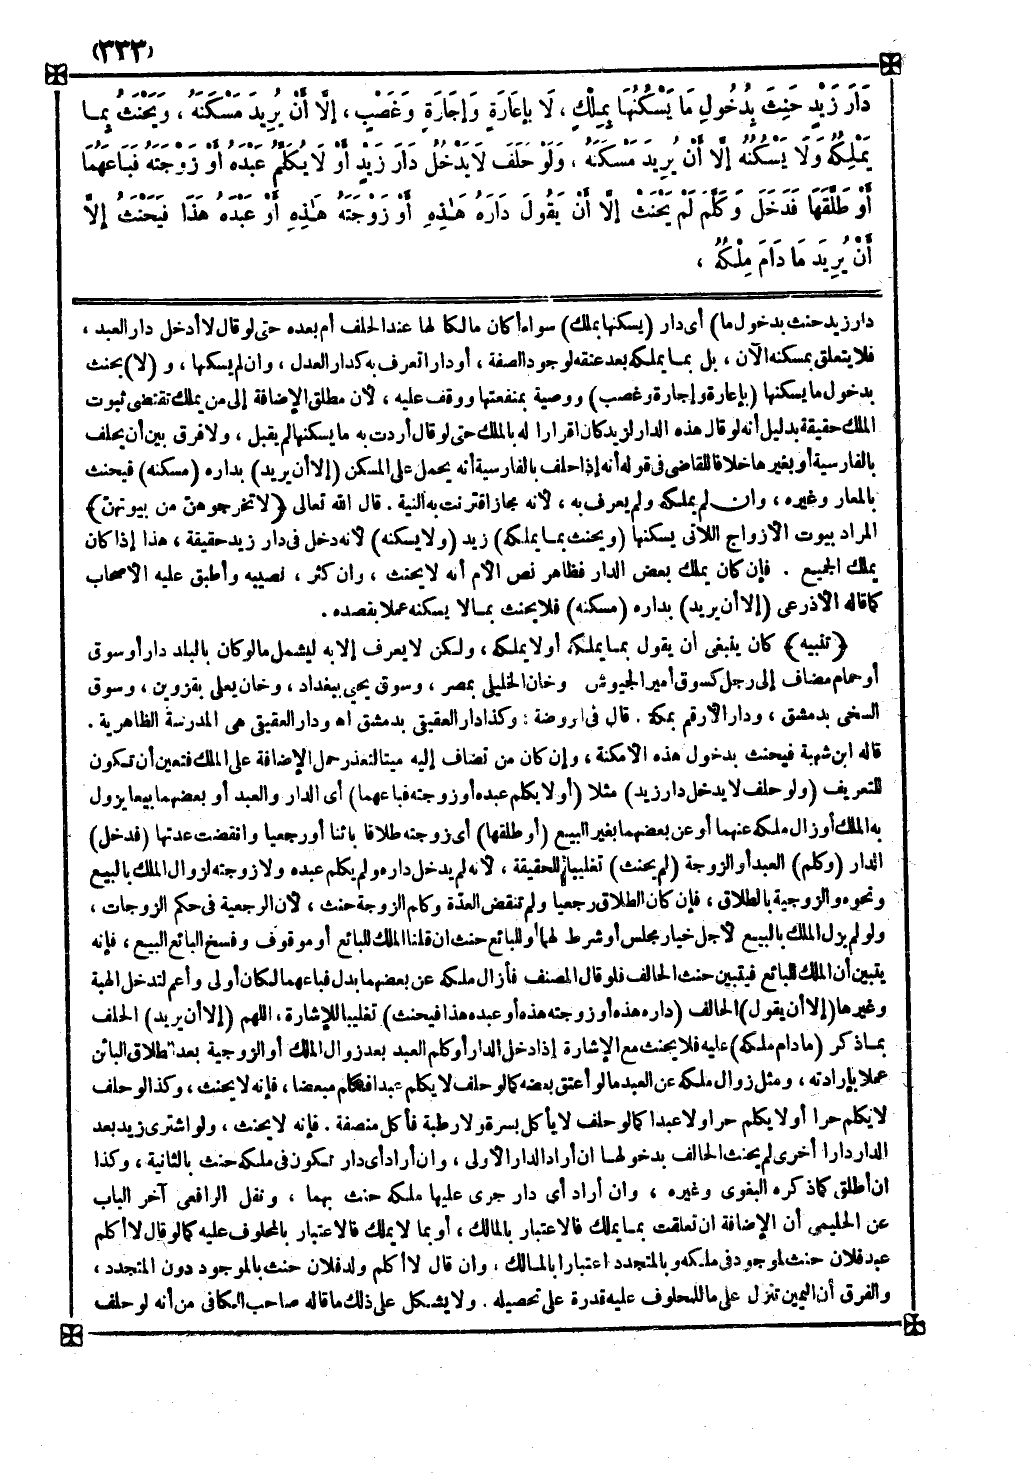 (٣٣٣)
دَارَ زَيْدٍ حَنِثَ بِدُخُولِ مَا يَسْكُنُهَا بِمِلْكٍ ، لَا بِإعَارَةٍ وَإِجَارَةٍ وَغَصْبٍ ، إلَّا أَنْ يُرِيدَ مَسْكَنَهُ ، وَيَحْنَثُ بِمَا
يَمْلِكُهُ وَلَا يَسْكُنُهُ إلَّا أَنْ يُرِيدَ مَسْكَنَهُ ، وَلَوْ حَلَفَ لَا يَدْخُلُ دَارَ زَيْدٍ أَوْ لَا يُكَلِّمُ عَبْدَهُ أَوْ زَوْجَتَهُ فَبَاعَهُمَا
أَوْ طَلَّقَهَا فَدَخَلَ وَكَلَّمَ لَمْ يَحْنَثْ إلَّا أَنْ يَقُولَ دَارَهُ هَذِهِ أَوْ زَوْجَتَهُ هَذِهِ أَوْ عَبْدَهُ هَذَا فَيَحْنَثُ إلَّا
أَنْ يُرِيدَ مَا دَامَ مِلْكُهُ ،
دار زيد حنث بدخول ما) أى دار (يسكنها بملك) سواء أكان مالكا لها عند الحلف أم بعده حتى لو قال لا أدخل دار العبد ،
فلا يتعلق بمسكنه الآن ، بل بما يملكه بعد عتقه لوجود الصفة ، أو دارا تعرف به كدار العدل ، وان لم يسكنها ، و (لا) يحنث
بدخول ما يسكنها (بإعارة وإجارة وغصب) ووصية بمنفعتها ووقف عليه ، لأن مطلق الإضافة إلى من يملك تقتضى ثبوت
الملك حقيقة بدليل أنه لو قال هذه الدار لزيد كان اقرارا له بالملك حتى لو قال أردت به ما يسكنها لم يقبل ، ولا فرق بين أن يحلف
بالفارسية أو بغيرها خلافا للقاضى فى قوله أنه إذا حلف بالفارسية أنه يحمل على المسكن (إلا أن يريد) بداره (مسكنه) فيحنث
بالمعار وغيره ، وان لم يملكه ولم يعرف به ، لأنه مجاز اقترنت به النية . قال الله تعالى ﴿لا تخرجوهن من بيوتهن﴾
المراد بيوت الأزواج اللاتى يسكنها (ويحنث بما يملكه) زيد (ولا يسكنه) لأنه دخل فى دار زيد حقيقة ، هذا إذا كان
يملك الجميع . فإن كان يملك بعض الدار فظاهر نص الأم أنه لا يحنث ، وان كثر ، نصيبه وأطبق عليه الأصحاب
كما قاله الأذرعى (إلا أن يريد) بداره (مسكنه) فلا يحنث بما لا يسكنه عملا بقصده .
﴿تنبيه﴾ كان ينبغى أن يقول بما يملكه أولا يملكه ، ولكن لا يعرف إلا به ليشمل مالو كان بالبلد دار أو سوق
أو حمام مضاف إلى رجل كسوق أمير الجيوش وخان الخليلى بمصر ، وسوق يحيى ببغداد ، وخان يعلى بقزوين ، وسوق
السخى بدمشق ، ودار الأرقم بمكة . قال فى اروضة : وكذا دار العقيقى بدمشق اه ودار العقيقى هى المدرسة الظاهرية .
قاله ابن شهبة فيحنث بدخول هذه الأمكنة ، وإن كان من تضاف إليه ميتا لتعذر حمل الإضافة على الملك فتعين أن تكون
للتعريف (ولو حلف لا يدخل دار زيد) مثلا (أو لا يكلم عبده أو زوجته فباعهما) أى الدار والعبد أو بعضهما بيعا يزول
به الملك أو زال ملكه عنهما أو عن بعضهما بغير البيع (أو طلقها) أى زوجته طلاقا بائنا أو رجعيا وانقضت عدتها (فدخل)
الدار (وكلم) العبد أو الزوجة (لم يحنث) تغليبا للحقيقة ، لأنه لم يدخل داره ولم يكلم عبده ولا زوجته لزوال الملك بالبيع
ونحوه والزوجية بالطلاق ، فإن كان الطلاق رجعيا ولم تنقض العدة وكلم الزوجة حنث ، لأن الرجعية فى حكم الزوجات ،
ولو لم يزل الملك بالبيع لأجل خيار مجلس أو شرط لهما أو للبائع حنث ان قلنا الملك للبائع أو موقوف وفسخ البائع البيع ، فإنه
يتبين أن الملك للبائع فيتبين حنث الحالف فلو قال المصنف فأزال ملكه عن بعضهما بدل فباعهما لكان أولى وأعم لتدخل الهبة
وغيرها (إلا أن يقول) الحالف (داره هذه أو زوجته هذه أو عبده هذا فيحنث) تغليبا للإشارة ، اللهم (إلا أن يريد) الحلف
بما ذكر (مادام ملكه) عليه فلا يحنث مع الإشارة إذا دخل الدار أو كلم العبد بعد زوال الملك أو الزوجية بعد الطلاق البائن
عملا بإرادته ، ومثل زوال ملكه عن العبد مالو أعتق بعضه كما لو حلف لا يكلم عبدا فكلم مبعضا ، فإنه لا يحنث ، وكذا لو حلف
لا يكلم حرا أو لا يكلم حرا ولا عبدا كما لو حلف لا يأكل بسرة ولا رطبة فأكل منصفة . فإنه لا يحنث ، ولو اشترى زيد بعد
الدار دارا أخرى لم يحنث الحالف بدخولها ان أراد الدار الأولى ، وان أراد أى دار تكون فى ملكه حنث بالثانية ، وكذا
ان أطلق كما ذكره البغوى وغيره ، وان أراد أى دار جرى عليها ملكه حنث بهما ، ونقل الرافعى آخر الباب
عن الحليمى أن الإضافة ان تعلقت بما يملك فالاعتبار بالمالك ، أو بما لا يملك فالاعتبار بالمحلوف عليه كما لو قال لا أكلم
عبد فلان حنث لموجود فى ملكه وبالمتجدد اعتبارا بالمالك ، وان قال لا أكلم ولد فلان حنث بالموجود دون المتجدد ،
والفرق أن اليمين تنزل على ما للمحلوف عليه قدرة على تحصيله . ولا يشكل على ذلك ما قاله صاحب الكافى من أنه لو حلف